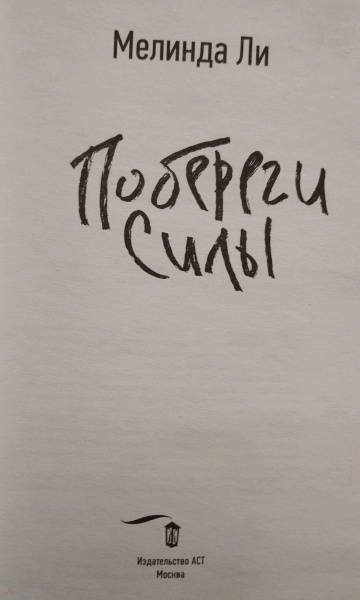 Мелинда Ли
Побереги
Силы
Издательство АСТ
Москва